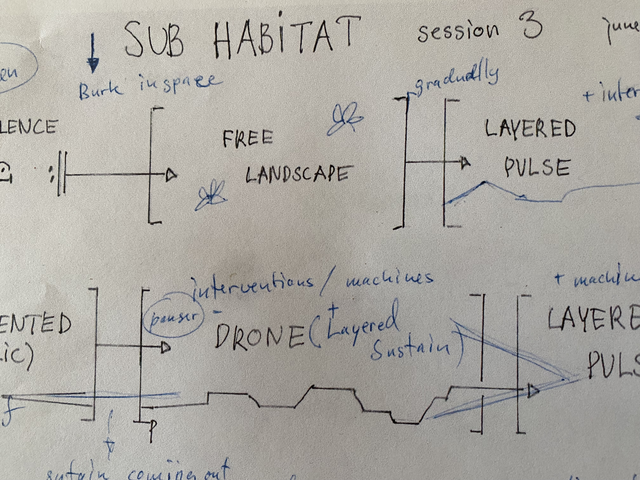 SUB HABITAT session 3 june
Burk in space
gradually
+ inter
LENCE
FREE
LANDSCAPE
LAYERED
PULSE
interventions / machines
+ machin
ENTED
IC)
pauser
DRONE (+ Layered
Sustain)
LAYERE
PULS
f
p
sustain coming out